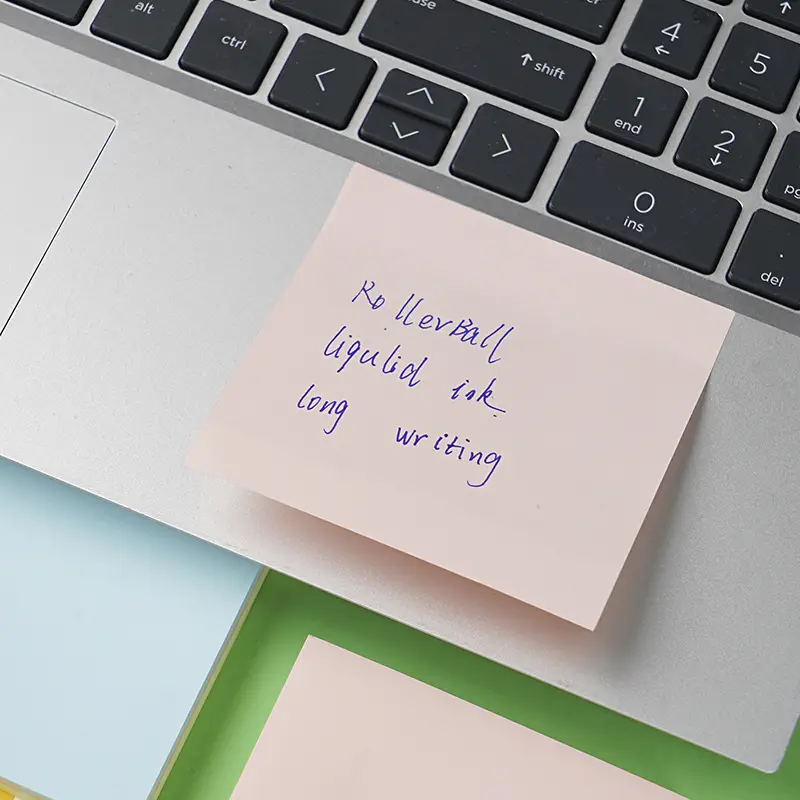 alt
ctrl
shift
4
5
1
end
2
0
ins
del
RollerBall
liqulid ink
long writing